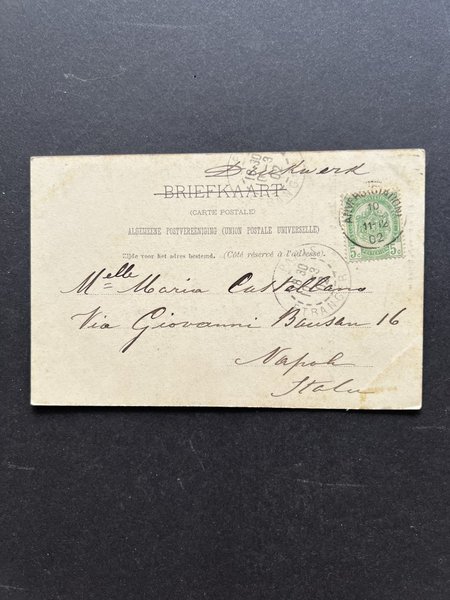 Drukwerk
BRIEFKAART
(CARTE POSTALE)
ALGEMEENE POSTVEREENIGING (UNION POSTALE UNIVERSELLE)
Zijde voor het adres bestemd. (Côté réservé à l'adresse).
Melle Maria Castellano
Via Giovanni Bausan 16
Napoli
Italie
5c 5c
ANVERS
10
11-12
02
ETRANGER
30